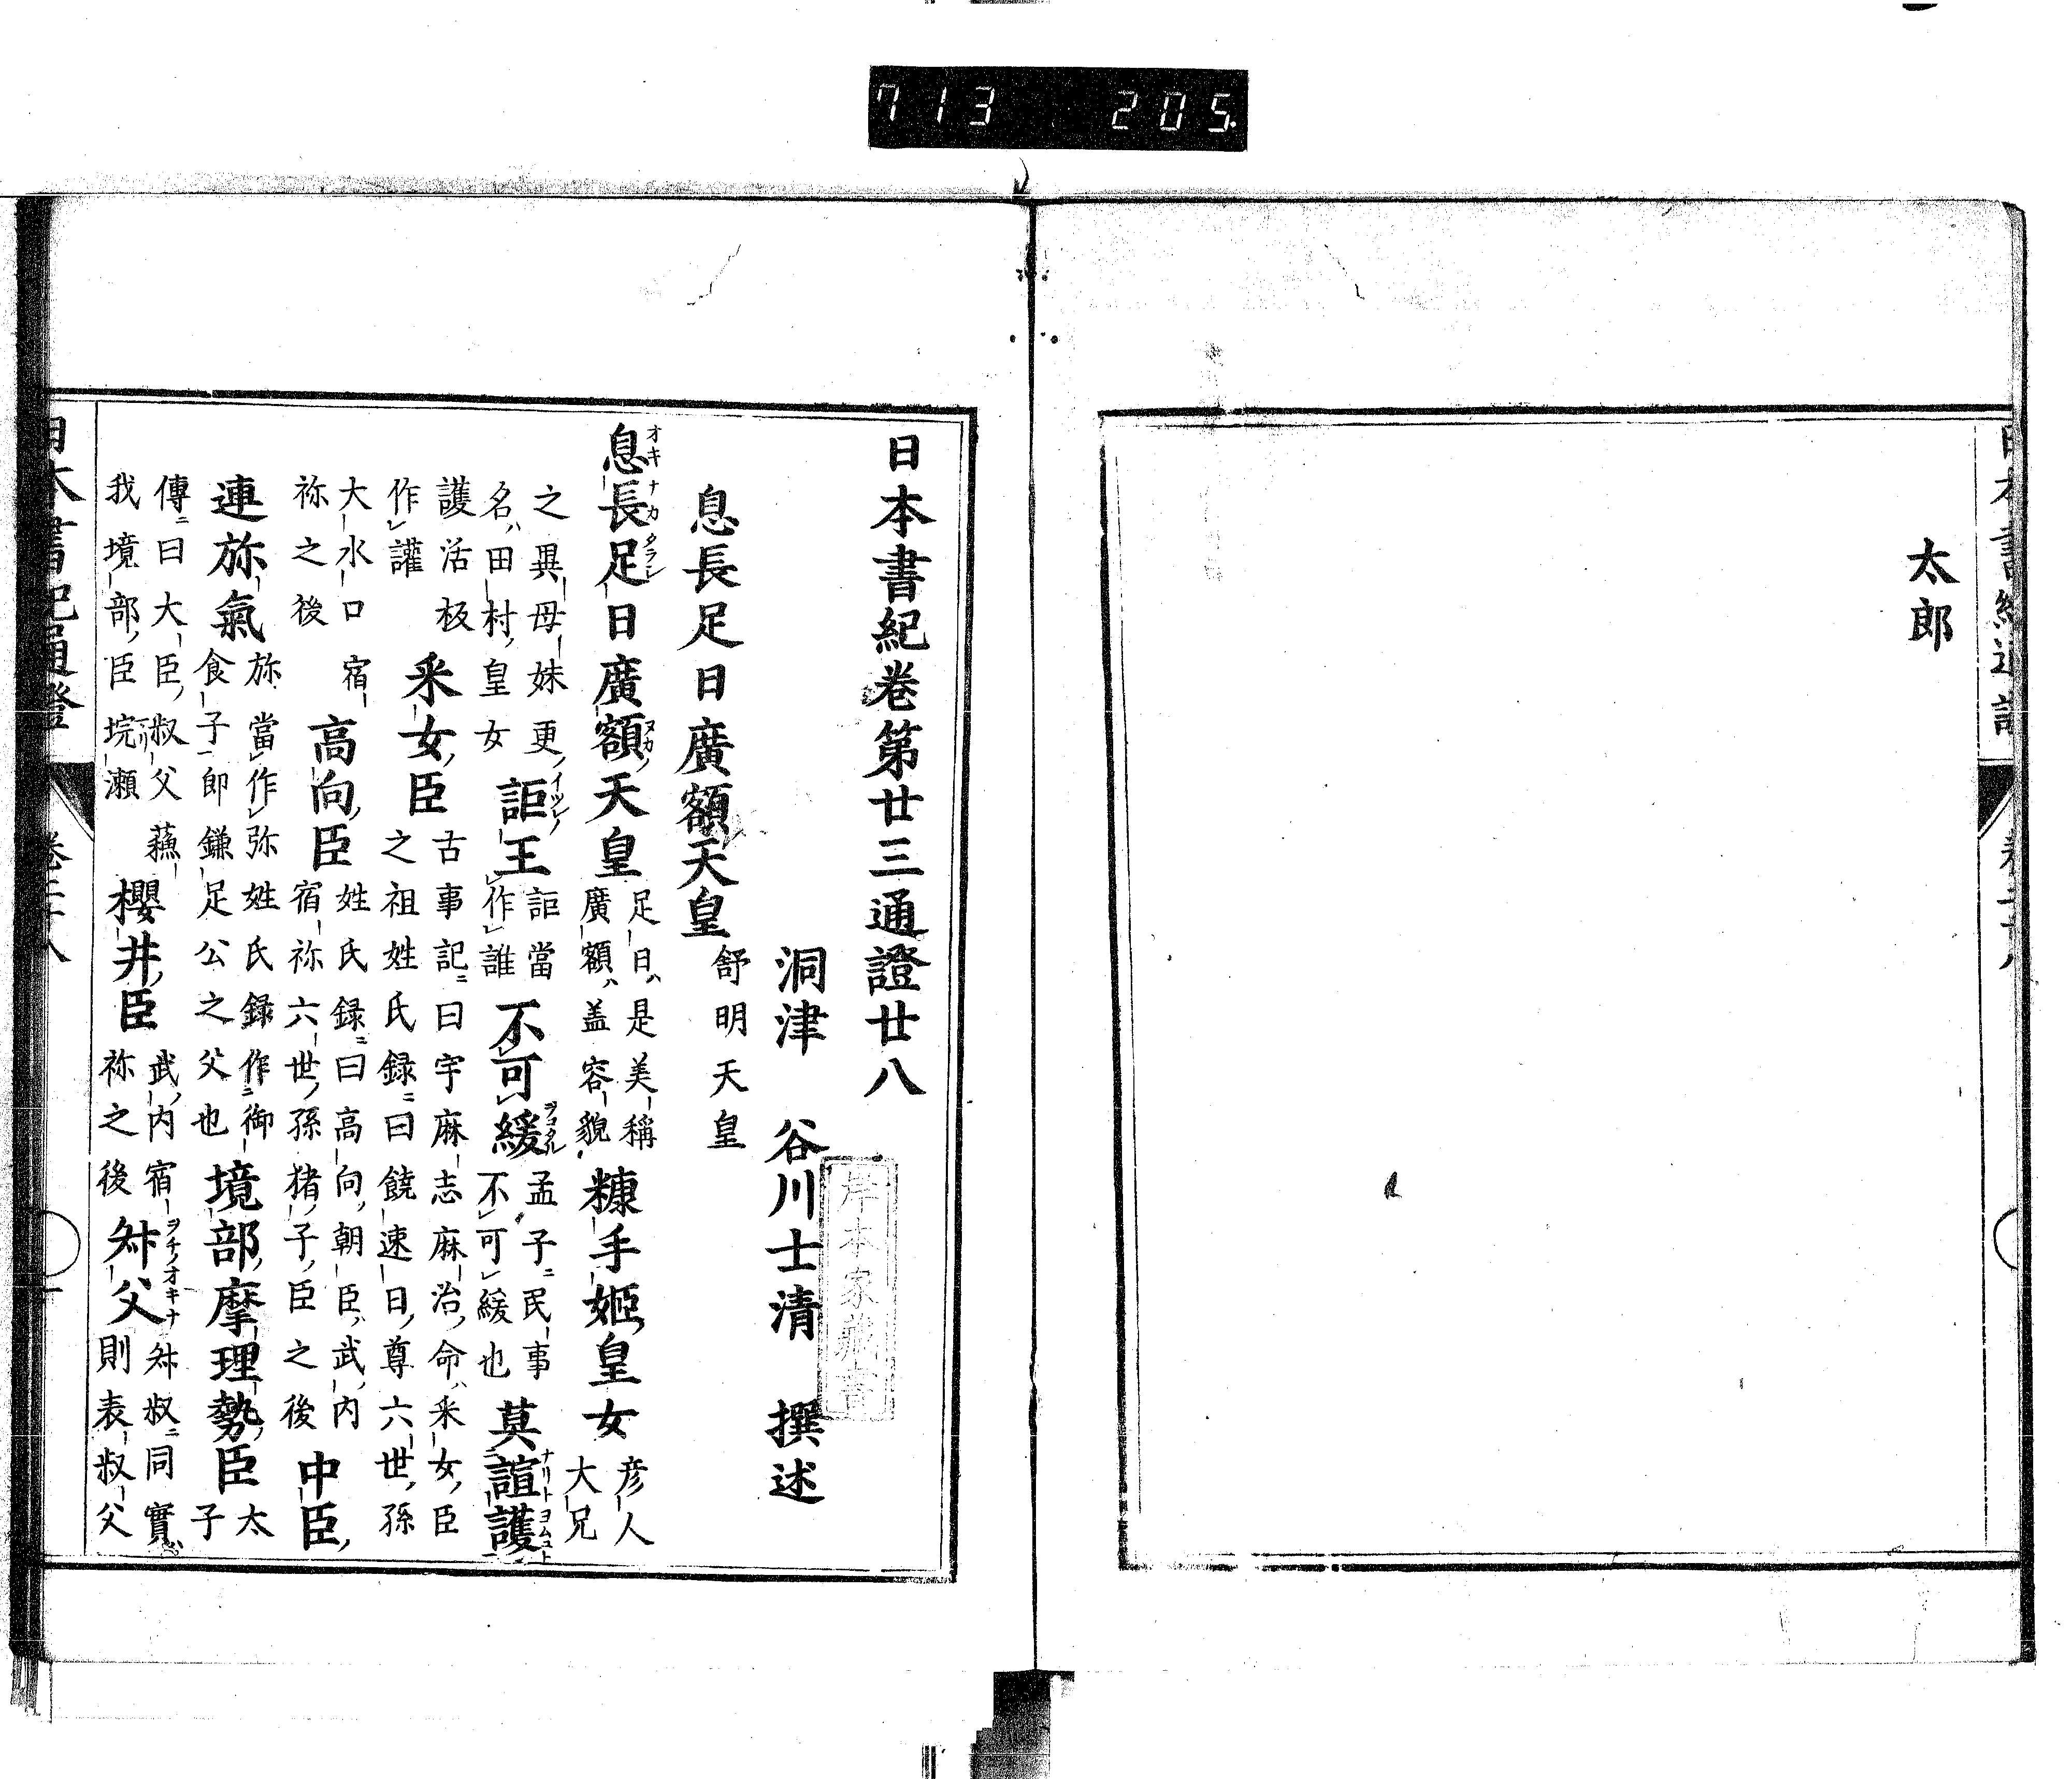 713 205
太郎
日本書紀卷第廿三通證廿八
洞津 谷川士清 撰述
息長足日廣額天皇 舒明天皇
息長足日廣額天皇 足日ハ是美稱廣額ハ盖容貌 糠手姬皇女 彦人大兄
之異母妹更名ハ田村皇女 詎王 詎當作誰 不可緩 孟子ニ民事不可緩也 莫諠譁
護活板作讙 釆女臣 古事記ニ曰宇麻志麻治命ハ釆女臣之祖姓氏録ニ曰饒速日尊六世孫
大水口宿祢之後 高向臣 姓氏録ニ曰高向朝臣武内宿祢六世孫猪子臣之後 中臣
連旀氣 旀當作弥姓氏録作ニ御食子即鎌足公之父也 境部摩理勢臣 太子
傳ニ曰大臣叔父蘓我境部臣垸瀬 櫻井臣 武内宿祢之後 舛父 舛叔ニ同實則表叔父
岸本家藏書